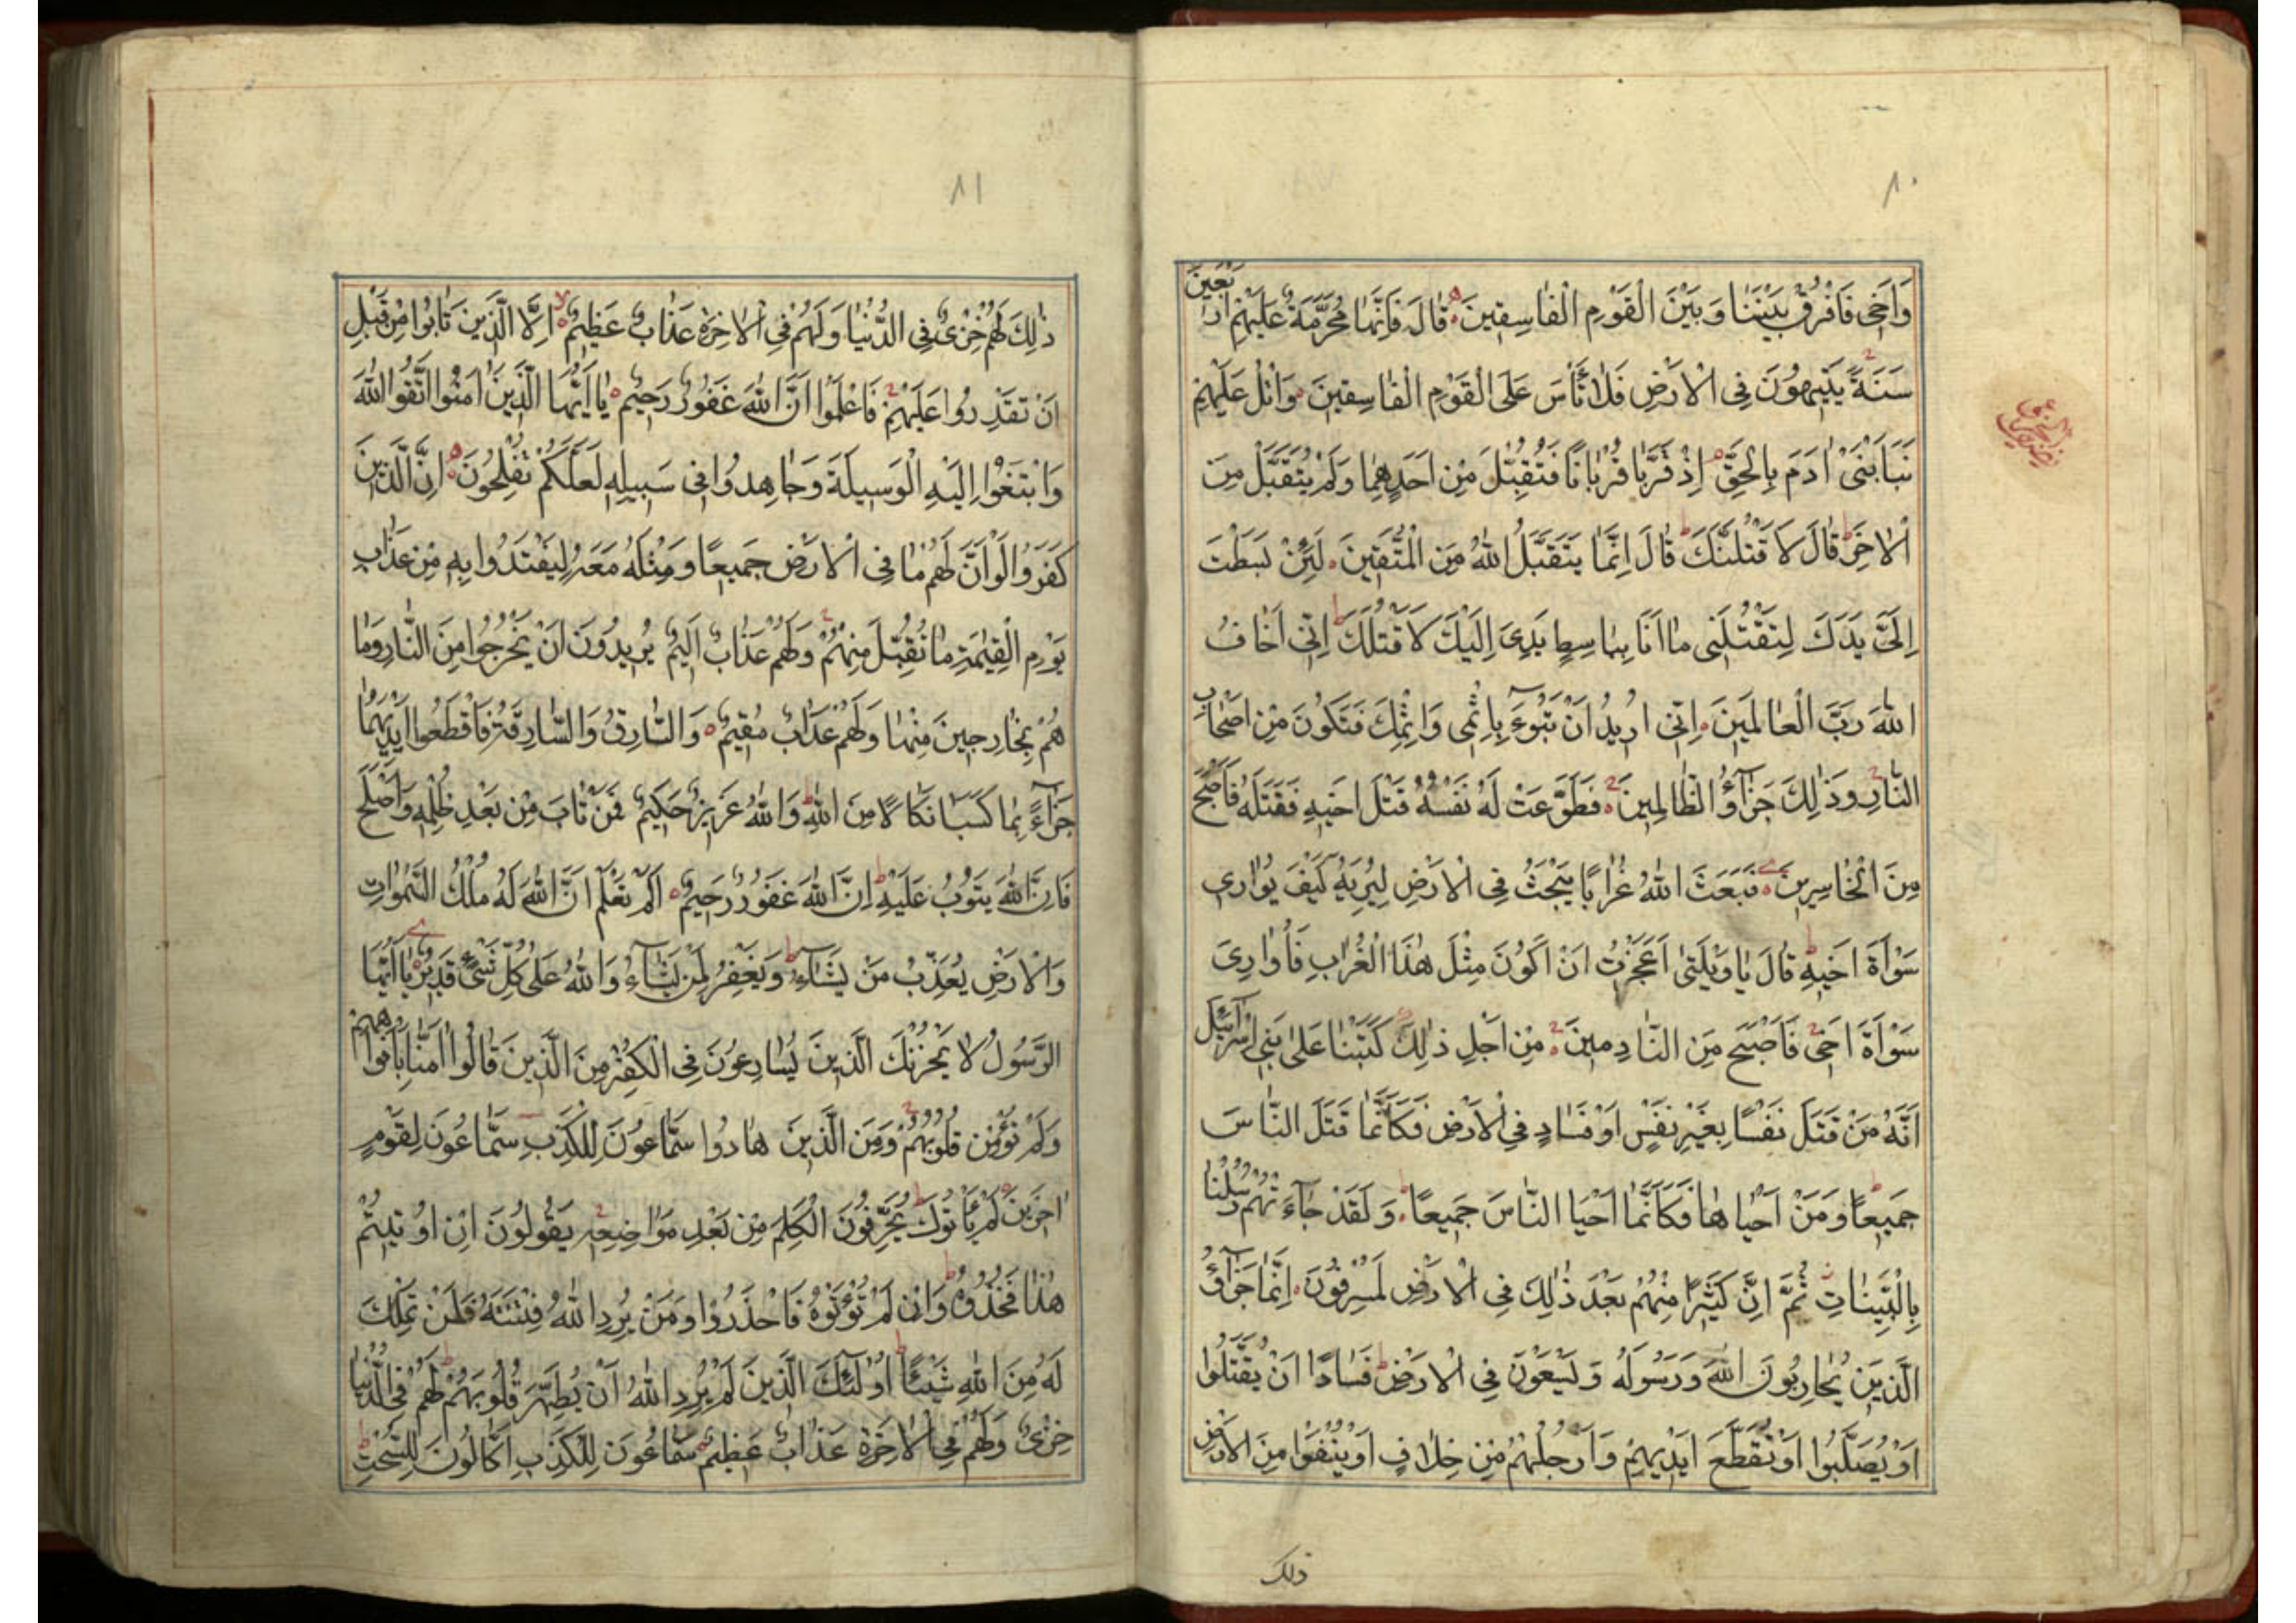 ٨٠
وَاَخٖى فَافْرُقْ بَيْنَنَا وَبَيْنَ الْقَوْمِ الْفَاسِقٖينَ قَالَ فَاِنَّهَا مُحَرَّمَةٌ عَلَيْهِمْ اَرْبَعٖينَ
سَنَةً يَتٖيهُونَ فِى الْاَرْضِ فَلَا تَأْسَ عَلَى الْقَوْمِ الْفَاسِقٖينَ وَاتْلُ عَلَيْهِمْ
نَبَاَ ابْنَىْ اٰدَمَ بِالْحَقِّ اِذْ قَرَّبَا قُرْبَانًا فَتُقُبِّلَ مِنْ اَحَدِهِمَا وَلَمْ يُتَقَبَّلْ مِنَ
الْاٰخَرِ قَالَ لَاَقْتُلَنَّكَ قَالَ اِنَّمَا يَتَقَبَّلُ اللّٰهُ مِنَ الْمُتَّقٖينَ لَئِنْ بَسَطْتَ
اِلَىَّ يَدَكَ لِتَقْتُلَنٖى مَا اَنَا بِبَاسِطٍ يَدِىَ اِلَيْكَ لِاَقْتُلَكَ اِنّٖى اَخَافُ
اللّٰهَ رَبَّ الْعَالَمٖينَ اِنّٖى اُرٖيدُ اَنْ تَبُوٓءَ بِاِثْمٖى وَاِثْمِكَ فَتَكُونَ مِنْ اَصْحَابِ
النَّارِ وَذٰلِكَ جَزٰٓؤُا الظَّالِمٖينَ فَطَوَّعَتْ لَهُ نَفْسُهُ قَتْلَ اَخٖيهِ فَقَتَلَهُ فَاَصْبَحَ
مِنَ الْخَاسِرٖينَ فَبَعَثَ اللّٰهُ غُرَابًا يَبْحَثُ فِى الْاَرْضِ لِيُرِيَهُ كَيْفَ يُوَارٖى
سَوْاَةَ اَخٖيهِ قَالَ يَا وَيْلَتٰى اَعَجَزْتُ اَنْ اَكُونَ مِثْلَ هٰذَا الْغُرَابِ فَاُوَارِىَ
سَوْاَةَ اَخٖى فَاَصْبَحَ مِنَ النَّادِمٖينَ مِنْ اَجْلِ ذٰلِكَ كَتَبْنَا عَلٰى بَنٖى اِسْرَآئٖيلَ
اَنَّهُ مَنْ قَتَلَ نَفْسًا بِغَيْرِ نَفْسٍ اَوْ فَسَادٍ فِى الْاَرْضِ فَكَاَنَّمَا قَتَلَ النَّاسَ
جَمٖيعًا وَمَنْ اَحْيَاهَا فَكَاَنَّمَا اَحْيَا النَّاسَ جَمٖيعًا وَلَقَدْ جَآءَتْهُمْ رُسُلُنَا
بِالْبَيِّنَاتِ ثُمَّ اِنَّ كَثٖيرًا مِنْهُمْ بَعْدَ ذٰلِكَ فِى الْاَرْضِ لَمُسْرِفُونَ اِنَّمَا جَزٰٓؤُا
الَّذٖينَ يُحَارِبُونَ اللّٰهَ وَرَسُولَهُ وَيَسْعَوْنَ فِى الْاَرْضِ فَسَادًا اَنْ يُقَتَّلُوا
اَوْ يُصَلَّبُوا اَوْ تُقَطَّعَ اَيْدٖيهِمْ وَاَرْجُلُهُمْ مِنْ خِلَافٍ اَوْ يُنْفَوْا مِنَ الْاَرْضِ
ذلك
٨١
ذٰلِكَ لَهُمْ خِزْىٌ فِى الدُّنْيَا وَلَهُمْ فِى الْاٰخِرَةِ عَذَابٌ عَظٖيمٌ اِلَّا الَّذٖينَ تَابُوا مِنْ قَبْلِ
اَنْ تَقْدِرُوا عَلَيْهِمْ فَاعْلَمُوا اَنَّ اللّٰهَ غَفُورٌ رَحٖيمٌ يَا اَيُّهَا الَّذٖينَ اٰمَنُوا اتَّقُوا اللّٰهَ
وَابْتَغُوا اِلَيْهِ الْوَسٖيلَةَ وَجَاهِدُوا فٖى سَبٖيلِهٖ لَعَلَّكُمْ تُفْلِحُونَ اِنَّ الَّذٖينَ
كَفَرُوا لَوْ اَنَّ لَهُمْ مَا فِى الْاَرْضِ جَمٖيعًا وَمِثْلَهُ مَعَهُ لِيَفْتَدُوا بِهٖ مِنْ عَذَابِ
يَوْمِ الْقِيٰمَةِ مَا تُقُبِّلَ مِنْهُمْ وَلَهُمْ عَذَابٌ اَلٖيمٌ يُرٖيدُونَ اَنْ يَخْرُجُوا مِنَ النَّارِ وَمَا
هُمْ بِخَارِجٖينَ مِنْهَا وَلَهُمْ عَذَابٌ مُقٖيمٌ وَالسَّارِقُ وَالسَّارِقَةُ فَاقْطَعُوا اَيْدِيَهُمَا
جَزَآءً بِمَا كَسَبَا نَكَالًا مِنَ اللّٰهِ وَاللّٰهُ عَزٖيزٌ حَكٖيمٌ فَمَنْ تَابَ مِنْ بَعْدِ ظُلْمِهٖ وَاَصْلَحَ
فَاِنَّ اللّٰهَ يَتُوبُ عَلَيْهِ اِنَّ اللّٰهَ غَفُورٌ رَحٖيمٌ اَلَمْ تَعْلَمْ اَنَّ اللّٰهَ لَهُ مُلْكُ السَّمٰوَاتِ
وَالْاَرْضِ يُعَذِّبُ مَنْ يَشَآءُ وَيَغْفِرُ لِمَنْ يَشَآءُ وَاللّٰهُ عَلٰى كُلِّ شَىْءٍ قَدٖيرٌ يَا اَيُّهَا
الرَّسُولُ لَا يَحْزُنْكَ الَّذٖينَ يُسَارِعُونَ فِى الْكُفْرِ مِنَ الَّذٖينَ قَالُوا اٰمَنَّا بِاَفْوَاهِهِمْ
وَلَمْ تُؤْمِنْ قُلُوبُهُمْ وَمِنَ الَّذٖينَ هَادُوا سَمَّاعُونَ لِلْكَذِبِ سَمَّاعُونَ لِقَوْمٍ
اٰخَرٖينَ لَمْ يَأْتُوكَ يُحَرِّفُونَ الْكَلِمَ مِنْ بَعْدِ مَوَاضِعِهٖ يَقُولُونَ اِنْ اُوتٖيتُمْ
هٰذَا فَخُذُوهُ وَاِنْ لَمْ تُؤْتَوْهُ فَاحْذَرُوا وَمَنْ يُرِدِ اللّٰهُ فِتْنَتَهُ فَلَنْ تَمْلِكَ
لَهُ مِنَ اللّٰهِ شَيْئًا اُولٰٓئِكَ الَّذٖينَ لَمْ يُرِدِ اللّٰهُ اَنْ يُطَهِّرَ قُلُوبَهُمْ لَهُمْ فِى الدُّنْيَا
خِزْىٌ وَلَهُمْ فِى الْاٰخِرَةِ عَذَابٌ عَظٖيمٌ سَمَّاعُونَ لِلْكَذِبِ اَكَّالُونَ لِلسُّحْتِ